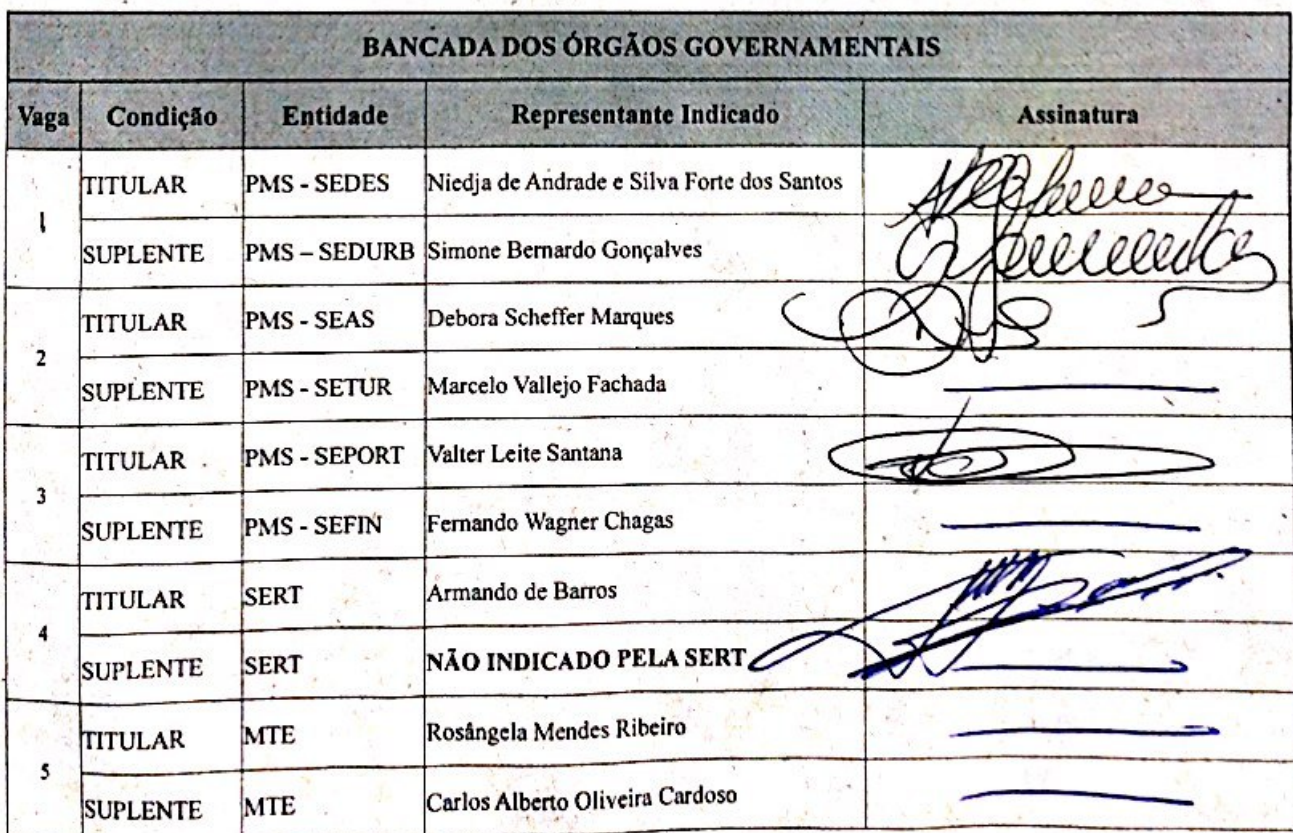 BANCADA DOS ÓRGÃOS GOVERNAMENTAIS
Vaga Condição Entidade Representante Indicado Assinatura
1 TITULAR PMS - SEDES Niedja de Andrade e Silva Forte dos Santos
SUPLENTE PMS – SEDURB Simone Bernardo Gonçalves
2 TITULAR PMS - SEAS Debora Scheffer Marques
SUPLENTE PMS - SETUR Marcelo Vallejo Fachada
3 TITULAR PMS - SEPORT Valter Leite Santana
SUPLENTE PMS - SEFIN Fernando Wagner Chagas
4 TITULAR SERT Armando de Barros
SUPLENTE SERT NÃO INDICADO PELA SERT
5 TITULAR MTE Rosângela Mendes Ribeiro
SUPLENTE MTE Carlos Alberto Oliveira Cardoso